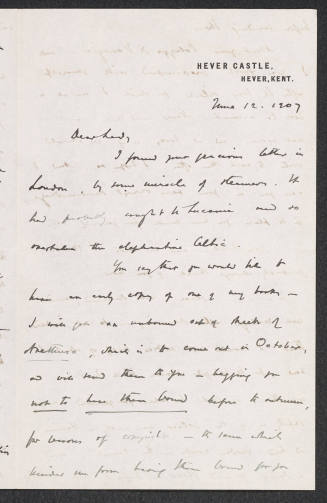 HEVER CASTLE,
HEVER, KENT.
June 12. 1907
Dear Lady,
I found your gracious letter in
London, by some miracle of steamers. It
had probably caught the Lucania and so
overtaken the elephantine Celtic.
You say that you would like to
have an early copy of one of my books —
I will get an unbound set of sheets of
, which is to come out in October,
and will send them to you — begging you
not to have them bound before the autumn,
for reasons of copyright — the same which
hinders me from having them bound for you